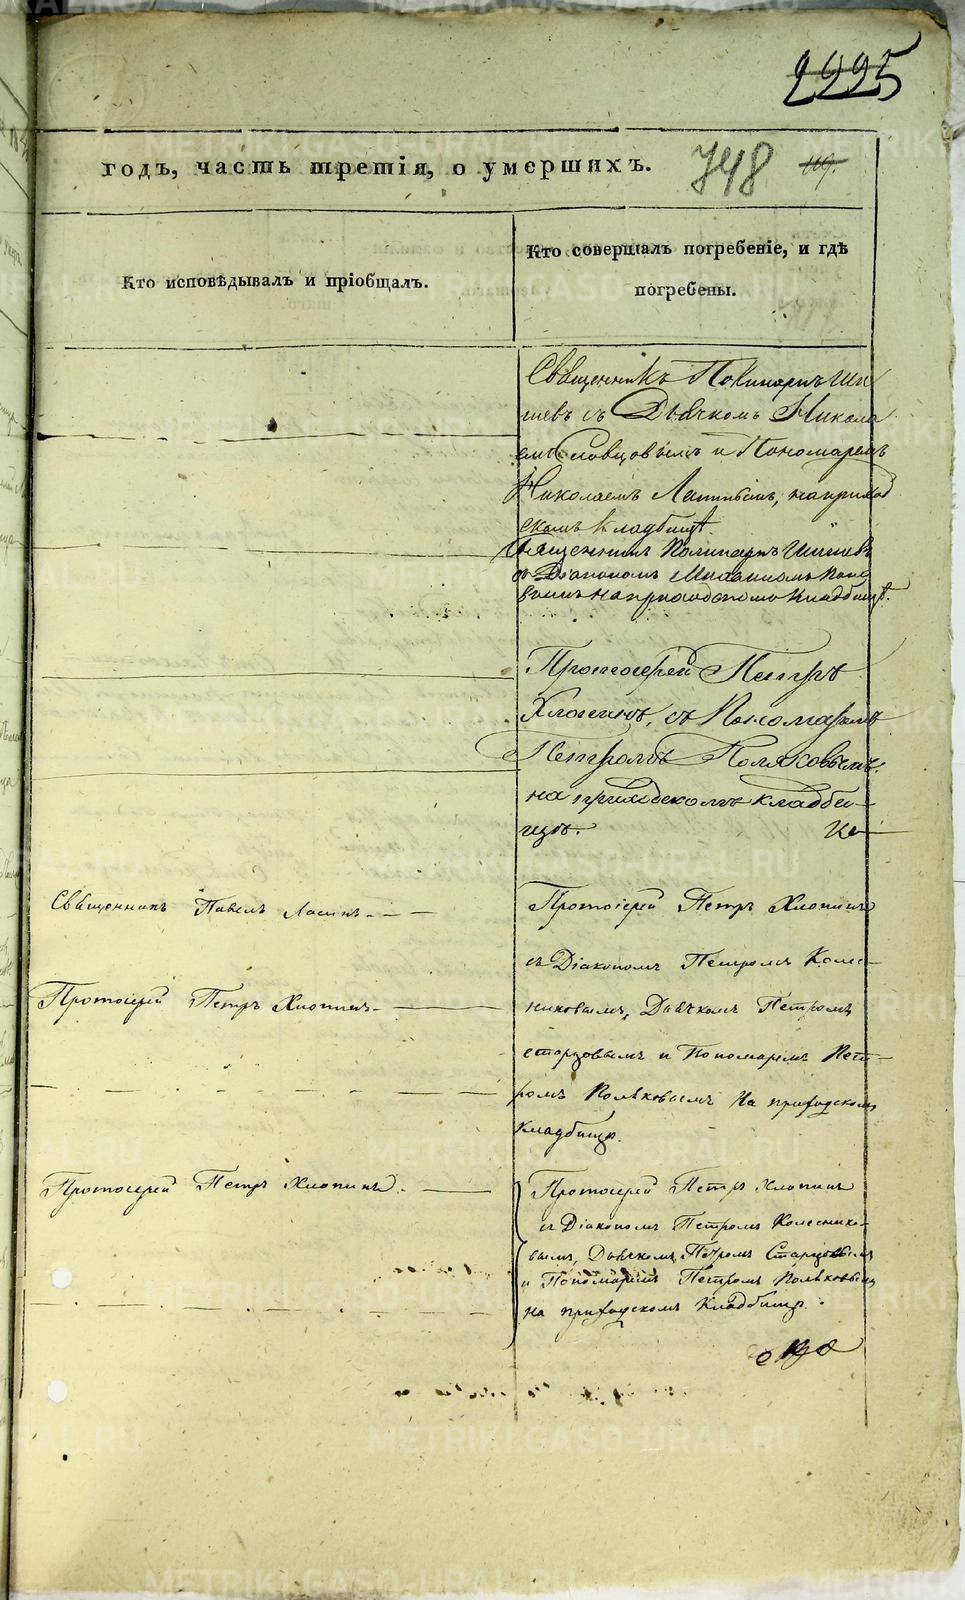 2225
годъ, часть третія, о умершихъ. 748 119.
Кто исповѣдывалъ и пріобщалъ.
Кто совершалъ погребеніе, и гдѣ
погребены.
Священникъ Поликарпъ Ши
шевъ съ Дьячкомъ Никола
емъ Словцовымъ и Пономаремъ
Николаемъ на приход
скомъ кладбищѣ.
Священникъ Поликарпъ Шишевъ
съ Діакономъ
на приходскомъ кладбищѣ.
Протоіерей Петръ
Хлопинъ, съ Пономаремъ
Петромъ Поляковымъ.
на приходскомъ кладби-
щѣ.
Священникъ Павелъ
Протоіерей Петръ Хлопинъ
съ Діакономъ Петромъ Колес-
Протоіерей Петръ Хлопинъ
никовымъ, Дьячкомъ Петромъ
Старцовымъ и Пономаремъ Пет-
ромъ Поляковымъ на приходскомъ
кладбищѣ.
Протоіерей Петръ Хлопинъ.
Протоіерей Петръ Хлопинъ
съ Діакономъ Петромъ Колеснико-
вымъ, Дьячкомъ Петромъ Старцовымъ
и Пономаремъ Петромъ Поляковымъ
на приходскомъ кладбищѣ.
METRIKI.GASO-URAL.RU